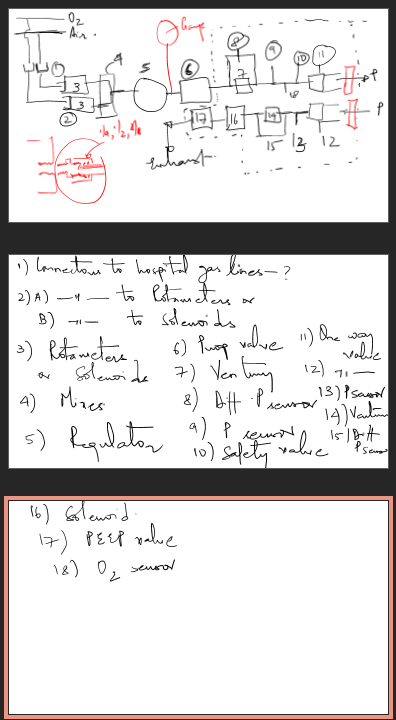 O2
Air
Gauge
1
2
3
3
4
5
6
7
8
9
10
11
P
18
P
17
16
14
15
13
12
exhaust
1) Connections to hospital gas lines — ?
2) A) —"— to Rotameters or
B) —"— to Solenoids
3) Rotameters
or Solenoids
4) Mixer
5) Regulator
6) Prop valve
7) Venturi
8) Diff. P sensor
9) P sensor
10) Safety valve
11) One way
valve
12) —"—
13) P sensor
14) Venturi
15) Diff
P sensor
16) Solenoid
17) PEEP valve
18) O2 sensor